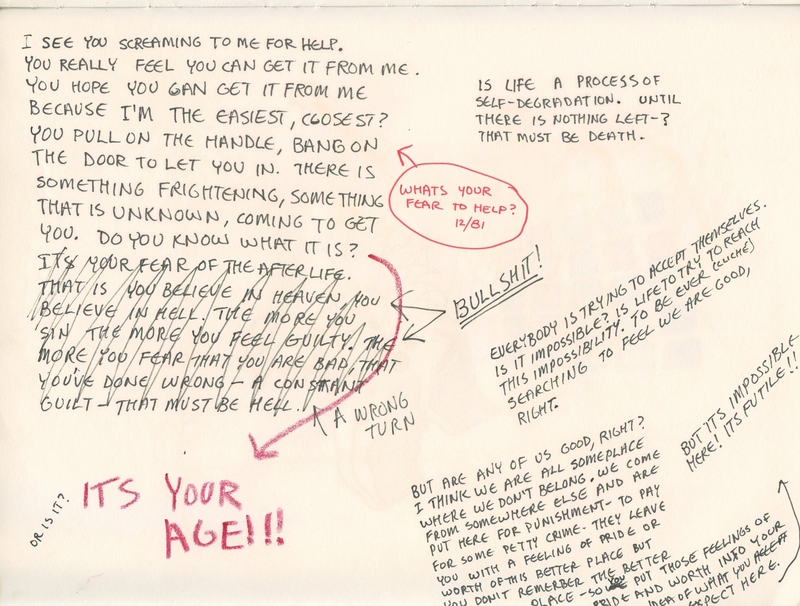 I SEE YOU SCREAMING TO ME FOR HELP.
YOU REALLY FEEL YOU CAN GET IT FROM ME.
YOU HOPE YOU CAN GET IT FROM ME
BECAUSE I'M THE EASIEST, CLOSEST?
YOU PULL ON THE HANDLE, BANG ON
THE DOOR TO LET YOU IN. THERE IS
SOMETHING FRIGHTENING, SOMETHING
THAT IS UNKNOWN, COMING TO GET
YOU. DO YOU KNOW WHAT IT IS?
IT'S YOUR FEAR OF THE AFTERLIFE.
THAT IS YOU BELIEVE IN HEAVEN, YOU
BELIEVE IN HELL. THE MORE YOU
SIN THE MORE YOU FEEL GUILTY. THE
MORE YOU FEAR THAT YOU ARE BAD, THAT
YOU'VE DONE WRONG - A CONSTANT
GUILT - THAT MUST BE HELL.
A WRONG
TURN
ITS YOUR
AGE!!!
OR IS IT?
WHATS YOUR
FEAR TO HELP?
12/81
BULLSHIT!
IS LIFE A PROCESS OF
SELF-DEGRADATION. UNTIL
THERE IS NOTHING LEFT-?
THAT MUST BE DEATH.
EVERYBODY IS TRYING TO ACCEPT THEMSELVES.
IS IT IMPOSSIBLE? IS LIFE TO TRY TO REACH
THIS IMPOSSIBILITY. TO BE EVER (CLICHÉ)
SEARCHING TO FEEL WE ARE GOOD,
RIGHT.
BUT IT'S IMPOSSIBLE
HERE! IT'S FUTILE!!
BUT ARE ANY OF US GOOD, RIGHT?
I THINK WE ARE ALL SOMEPLACE
WHERE WE DON'T BELONG. WE COME
FROM SOMEWHERE ELSE AND ARE
PUT HERE FOR PUNISHMENT - TO PAY
FOR SOME PETTY CRIME. THEY LEAVE
YOU WITH A FEELING OF PRIDE OR
WORTH OF THIS BETTER PLACE BUT
YOU DON'T REMEMBER THE BETTER
PLACE - SO PUT THOSE FEELINGS OF
PRIDE AND WORTH INTO YOUR
IDEA OF WHAT YOU
EXPECT HERE.